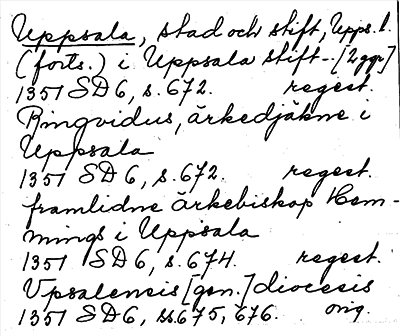 Uppsala, stad och stift, Upps. l.
(forts.) i Uppsala stift -. [2 ggr]
1351 SD6, s. 672. regest.
Ringvidus, ärkedjäkne i
Uppsala
1351 SD6, s. 672. regest.
framlidne ärkebiskop Hem-
mings i Uppsala
1351 SD6, s. 674. regest.
Vpsalensis [gen.] diocesis
1351 SD6, ss. 675, 676. orig.